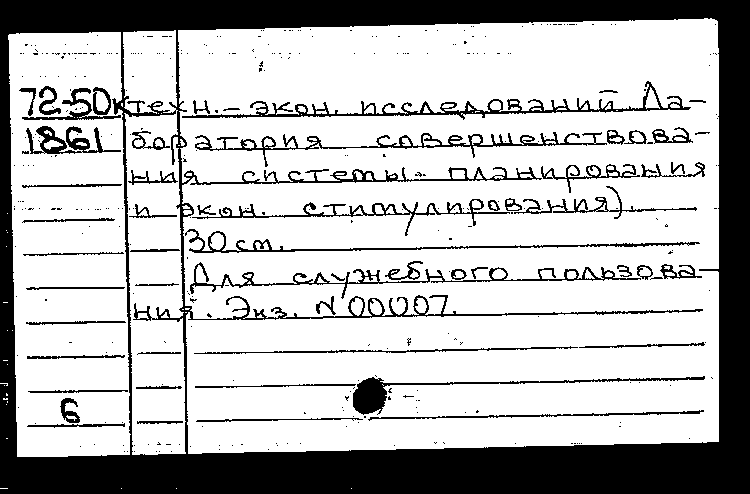 72-50к техн.- экон. исследований Ла-
1861 боратория совершенствова-
ния системы планирования
и экон. стимулирования).
30 см.
Для служебного пользова-
ния. Экз. N 00007.
6